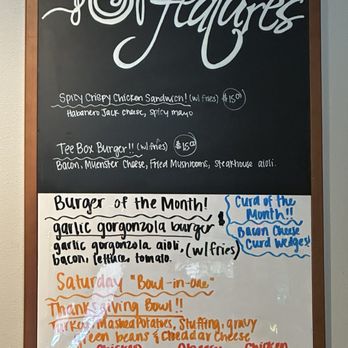 features
Spicy Crispy Chicken Sandwich! (w/ fries) $15.00
Habanero Jack cheese, spicy mayo
Tee Box Burger!! (w/ fries) $15.00
Bacon, Muenster Cheese, Fried Mushrooms, steakhouse aioli.
Burger of the Month!
garlic gorgonzola burger $
garlic gorgonzola aioli, (w/fries)
bacon, lettuce, tomato.
Curd of the
Month!!
Bacon Cheese
Curd Wedges!
Saturday "Bowl-in-one"
Thanksgiving Bowl!!
Turkey, Mashed Potatoes, Stuffing, gravy
green beans & cheddar cheese
Chicken
Chicken